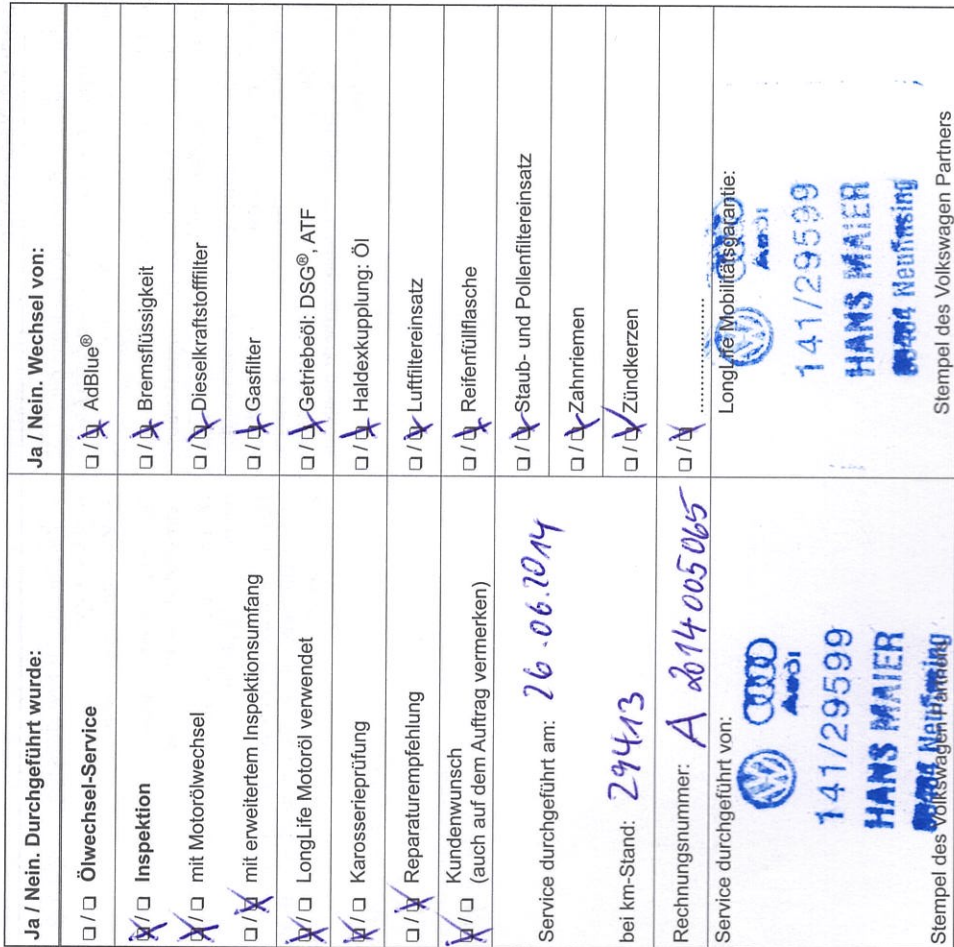 Ja / Nein. Durchgeführt wurde:
❑ / ❑ Ölwechsel-Service
❑ / ❑ Inspektion
❑ / ❑ mit Motorölwechsel
❑ / ❑ mit erweitertem Inspektionsumfang
❑ / ❑ LongLife Motoröl verwendet
❑ / ❑ Karosserieprüfung
❑ / ❑ Reparaturempfehlung
❑ / ❑ Kundenwunsch
(auch auf dem Auftrag vermerken)
Service durchgeführt am: 26.06.2014
bei km-Stand: 29413
Rechnungsnummer: A 2014005065
Service durchgeführt von:
Audi
141/29599
HANS MAIER
Neufinsing
Stempel des Volkswagen Partners
Ja / Nein. Wechsel von:
❑ / ❑ AdBlue®
❑ / ❑ Bremsflüssigkeit
❑ / ❑ Dieselkraftstofffilter
❑ / ❑ Gasfilter
❑ / ❑ Getriebeöl: DSG®, ATF
❑ / ❑ Haldexkupplung: Öl
❑ / ❑ Luftfiltereinsatz
❑ / ❑ Reifenfüllflasche
❑ / ❑ Staub- und Pollenfiltereinsatz
❑ / ❑ Zahnriemen
❑ / ❑ Zündkerzen
❑ / ❑ ........................
LongLife Mobilitätsgarantie:
Audi
141/29599
HANS MAIER
Neufinsing
Stempel des Volkswagen Partners